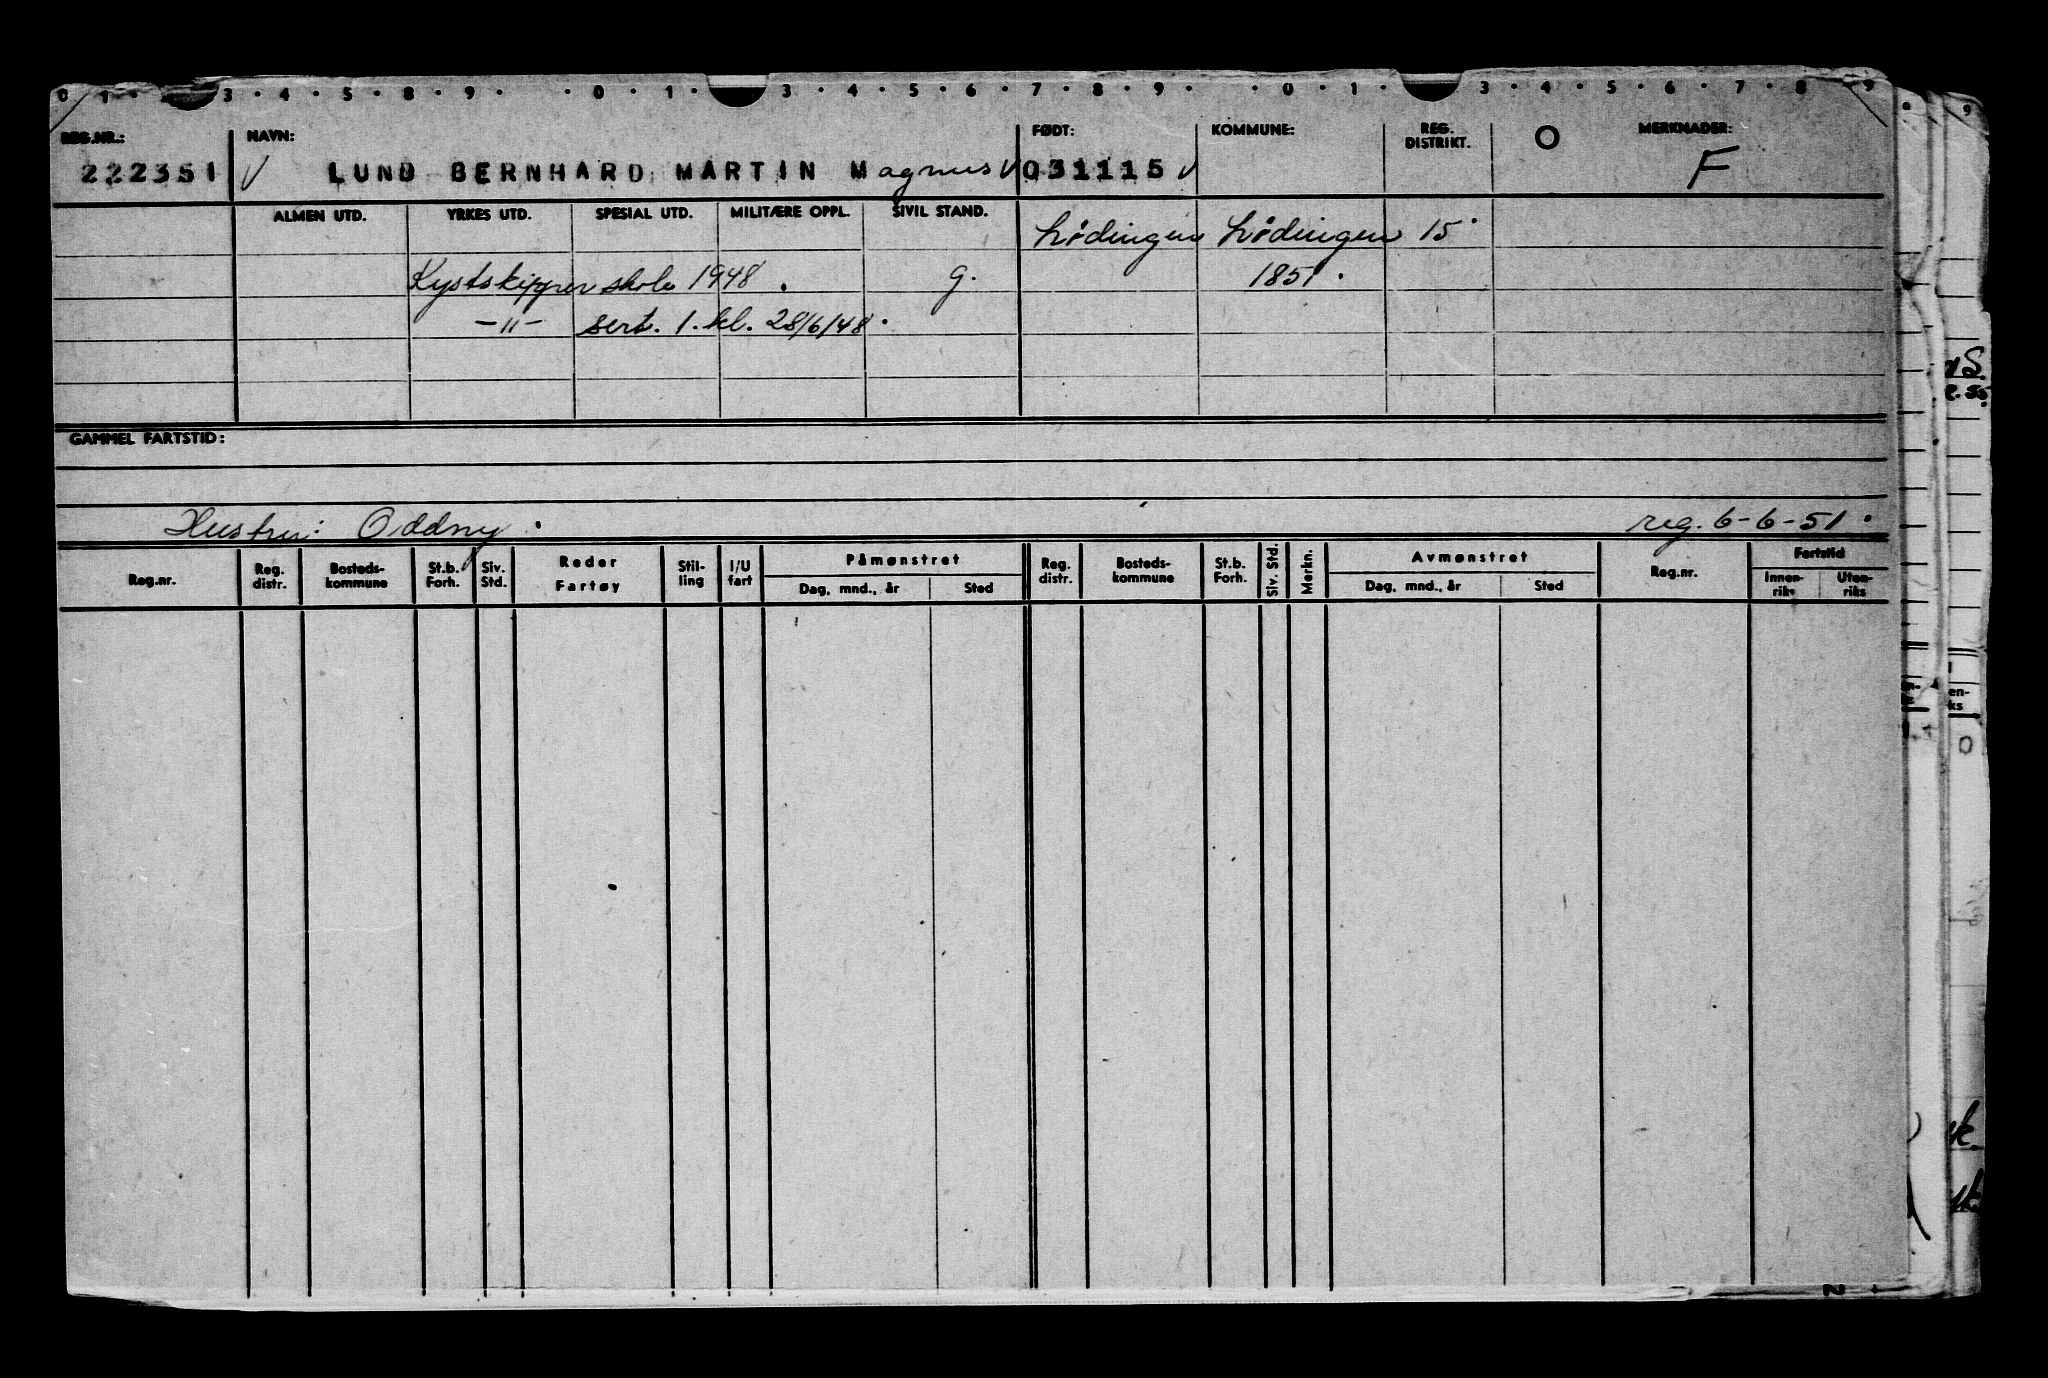 0 1 · 3 · 4 · 5 · 8 · 9 · · 0 · 1 · 3 · 4 · 5 · 6 · 7 · 8 · 9 · · 0 · 1 · 3 · 4 · 5 · 6 · 7 · 8 9
REG.NR.: NAVN: FØDT: KOMMUNE: REG. DISTRIKT. O MERKNADER:
222351 V LUND BERNHARD MARTIN Magnus V 031115 V F
ALMEN UTD. YRKES UTD. SPESIAL UTD. MILITÆRE OPPL. SIVIL STAND.
Lødingen Lødingen 15.
Kystskipperskole 1948. g. 1851.
-"- sert. 1. kl. 28/6/48.
GAMMEL FARTSTID:
Hustru: Oddny. reg. 6-6-51.
Reg.nr. Reg. distr. Bosteds-kommune St.b. Forh. Siv. Std. Reder Fartøy Stil-ling I/U fart Påmønstret Dag, mnd., år Sted Reg. distr. Bosteds-kommune St.b. Forh. Siv. Std. Merkn. Avmønstret Dag, mnd., år Sted Reg.nr. Fartstid Innen-riks Uten-riks